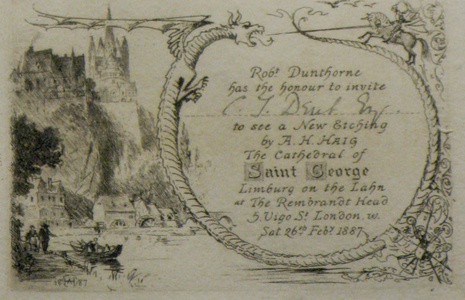 Robt. Dunthorne
has the honour to invite
C. J.
to see a New Etching
by A. H. HAIG
The Cathedral of
Saint George
Limburg on the Lahn
at The Rembrandt Head
5. Vigo St. London. w.
Sat 26th Feby. 1887.